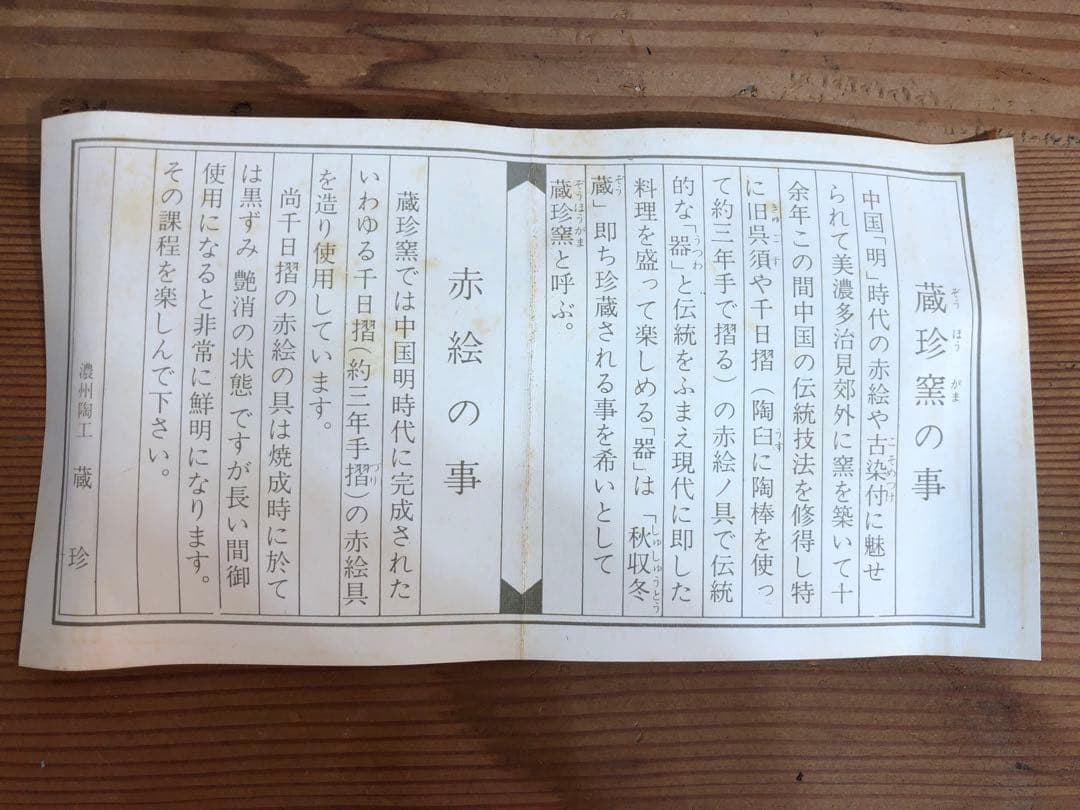 蔵珍窯の事
ぞうほうがま
中国「明」時代の赤絵や古染付に魅せ
こそめつけ
られて美濃多治見郊外に窯を築いて十
余年この間中国の伝統技法を修得し特
に旧呉須や千日摺(陶臼に陶棒を使っ
きゅこす
うす
て約三年手で摺る)の赤絵ノ具で伝統
的な「器」と伝統をふまえ現代に即した
うつわ
料理を盛って楽しめる「器」は「秋収冬
しゅしゅうとう
蔵」即ち珍蔵される事を希いとして
ぞう
蔵珍窯と呼ぶ。
ぞうほうがま
赤絵の事
蔵珍窯では中国明時代に完成された
いわゆる千日摺(約三年手摺)の赤絵具
づり
を造り使用しています。
尚千日摺の赤絵の具は焼成時に於て
は黒ずみ艶消の状態ですが長い間御
使用になると非常に鮮明になります。
その課程を楽しんで下さい。
濃州陶工 蔵珍